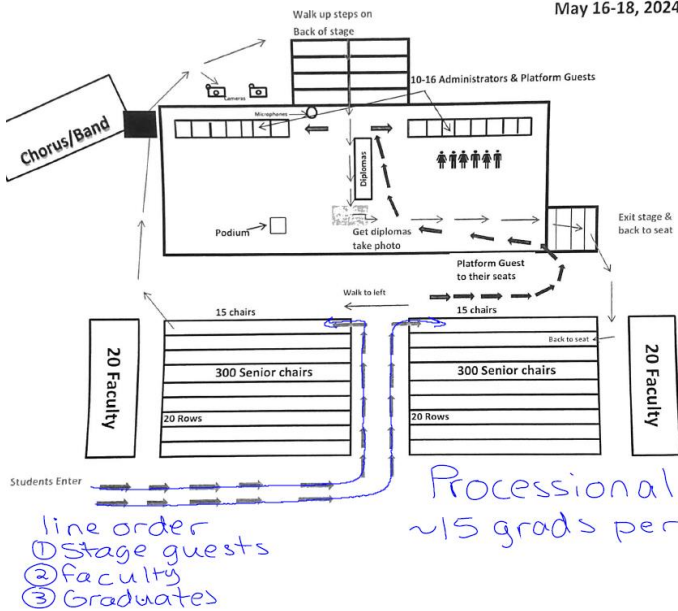 May 16-18, 2024
Walk up steps on
Back of stage
Cameras
10-16 Administrators & Platform Guests
Microphones
Chorus/Band
Diplomas
Podium
Get diplomas
take photo
Exit stage &
back to seat
Platform Guest
to their seats
Walk to left
15 chairs
15 chairs
20 Faculty
300 Senior chairs
20 Rows
Back to seat
300 Senior chairs
20 Rows
20 Faculty
Students Enter
Processional
~15 grads per
line order
① Stage guests
② faculty
③ Graduates